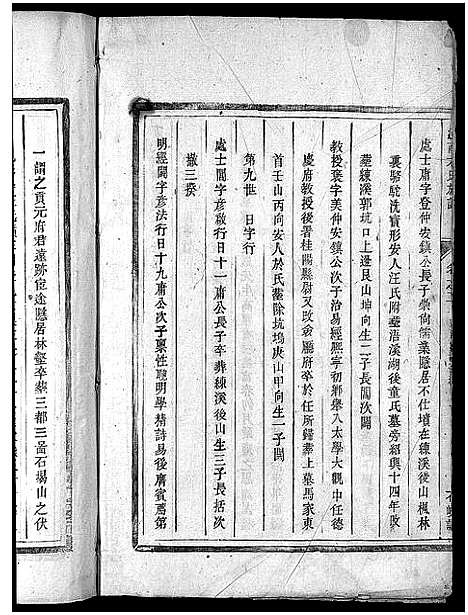 處士庸字登仲安鎮公長子崇尙儒業隱居不仕墳在練溪後山楓林
裏駱駝洗寶形安人汪氏附塟浯溪湖後童氏墓旁紹興十四年改
塟練溪郭坑口上邊艮山坤向生二子長閭次闢
教授褒字美仲安鎮公次子治易經熙寧初鄉舉入太學大觀中任德
慶府教授後署桂陽縣尉又改歙 廳府卒於任所歸塟上墓馬家東
首壬山丙向安人於氏塟除坑塢庚山甲向生二子闓
第九世 日字行
處士誾字彥啟行日十一庸公長子卒葬練溪後山生三子長括次
撤三揆
明經闢字彥法行日十九庸公次子稟性聰明學精詩易後膺賓薦第
一謂之貢元府君遠跡宦途隱居林壑卒葬三都三畐石場山之伏